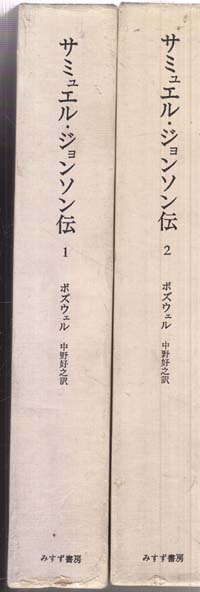 サミュエル・ジョンソン伝
1
ボズウェル
中野好之訳
みすず書房
サミュエル・ジョンソン伝
2
ボズウェル
中野好之訳
みすず書房